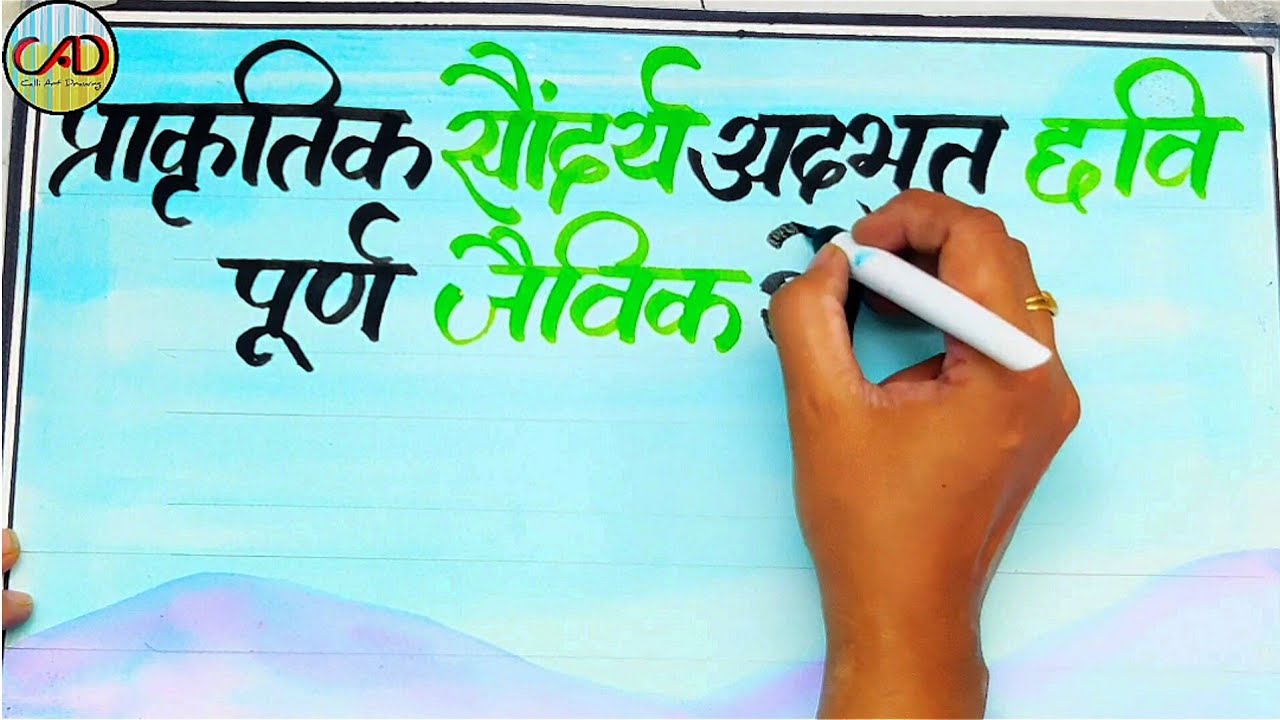 CAD
Calli Art Drawing
प्राकृतिक सौंदर्य अदभुत छवि
पूर्ण जैविक